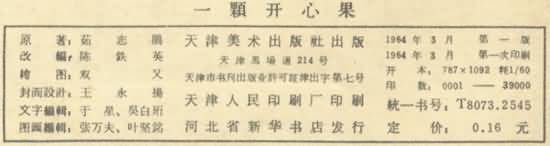 一顆开心果
原著：茹志鵑
改編：陈鉄英
繪图：双又
封面設計：王永揚
文字編輯：于星、吳白珩
图画編輯：张万夫、叶坚銘
天津美术出版社出版
天津馬場道214号
天津市书刋出版业許可証津出字第七号
天津人民印刷厂印刷
河北省新华书店发行
1964年3月第一版
1964年3月第一次印刷
开本：787×1092 耗1/60
印数：0001——39000
統一书号：T8073.2545
定价：0.16元